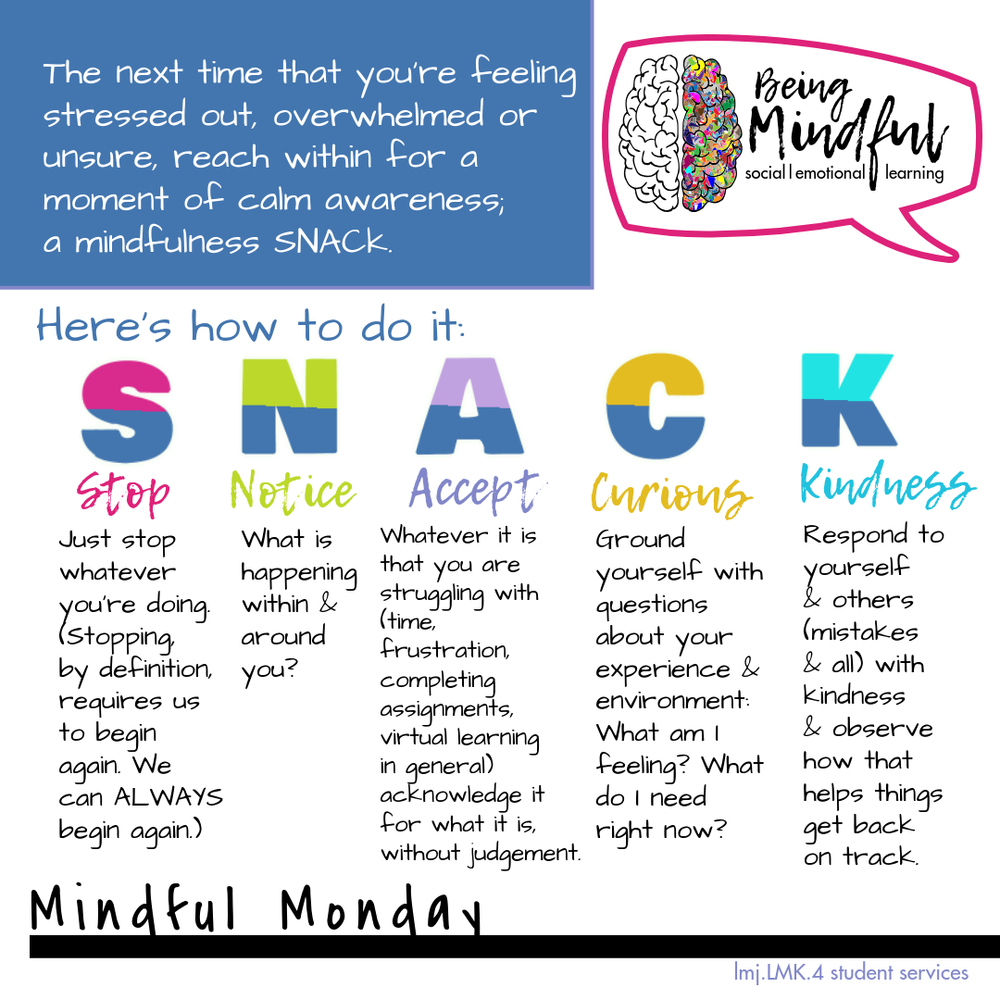 The next time that you're feeling
stressed out, overwhelmed or
unsure, reach within for a
moment of calm awareness;
a mindfulness SNACK.
Being
Mindful
social | emotional learning
Here's how to do it:
S
Stop
Just stop
whatever
you're doing.
(Stopping,
by definition,
requires us
to begin
again. We
can ALWAYS
begin again.)
N
Notice
What is
happening
within &
around
you?
A
Accept
Whatever it is
that you are
struggling with
(time,
frustration,
completing
assignments,
virtual learning
in general)
acknowledge it
for what it is,
without judgement.
C
Curious
Ground
yourself with
questions
about your
experience &
environment:
What am I
feeling? What
do I need
right now?
K
Kindness
Respond to
yourself
& others
(mistakes
& all) with
kindness
& observe
how that
helps things
get back
on track.
Mindful Monday
lmj.LMK.4 student services